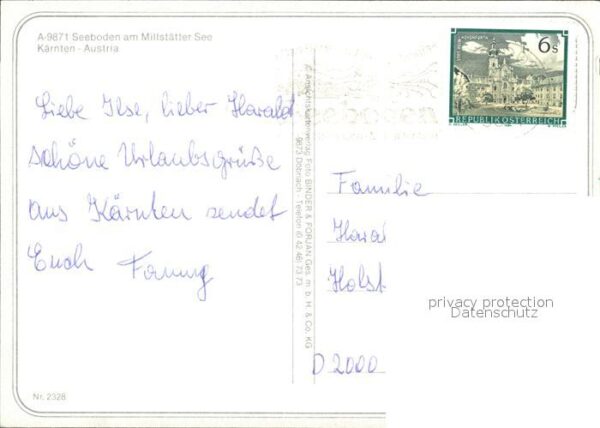 A-9871 Seeboden am Millstätter See
Kärnten - Austria
Liebe Ilse, lieber Harald
schöne Urlaubsgrüße
aus Kärnten sendet
Euch Fanny
Nr. 2328
Foto BINDER & FORJAN Ges. m. b. H. & Co. KG
9873 Döbriach - Telefon (0 42 46) 73 73
6s
REPUBLIK ÖSTERREICH
Familie
Hara
Holst
D 2000
privacy protection
Datenschutz